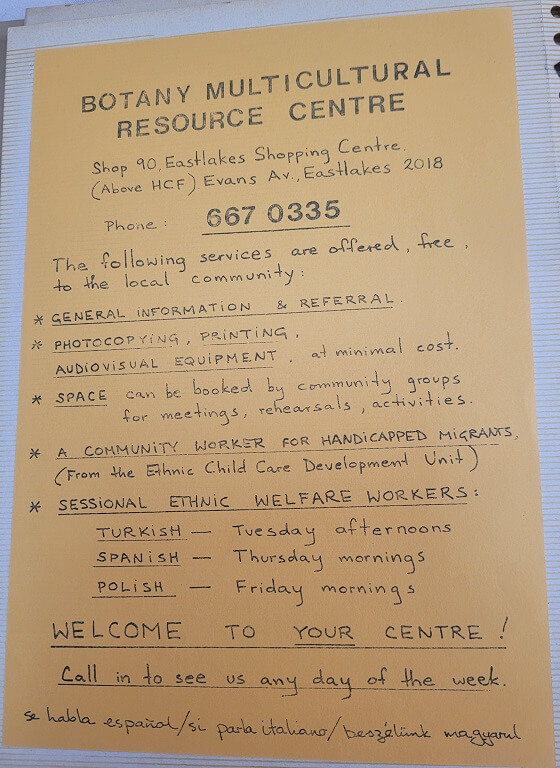 BOTANY MULTICULTURAL
RESOURCE CENTRE
Shop 90, Eastlakes Shopping Centre.
(Above HCF) Evans Av., Eastlakes 2018
Phone: 667 0335
The following services are offered, free,
to the local community:
* GENERAL INFORMATION & REFERRAL.
* PHOTOCOPYING, PRINTING,
AUDIOVISUAL EQUIPMENT, at minimal cost.
* SPACE can be booked by community groups
for meetings, rehearsals, activities.
* A COMMUNITY WORKER FOR HANDICAPPED MIGRANTS,
(From the Ethnic Child Care Development Unit)
* SESSIONAL ETHNIC WELFARE WORKERS:
TURKISH — Tuesday afternoons
SPANISH — Thursday mornings
POLISH — Friday mornings
WELCOME TO YOUR CENTRE!
Call in to see us any day of the week.
se habla español/si parla italiano/beszélünk magyarul